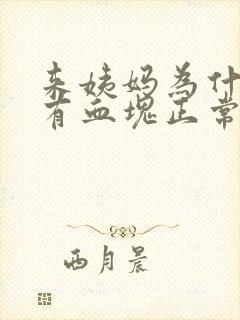 来姨妈为什
有血块正常
西月晨